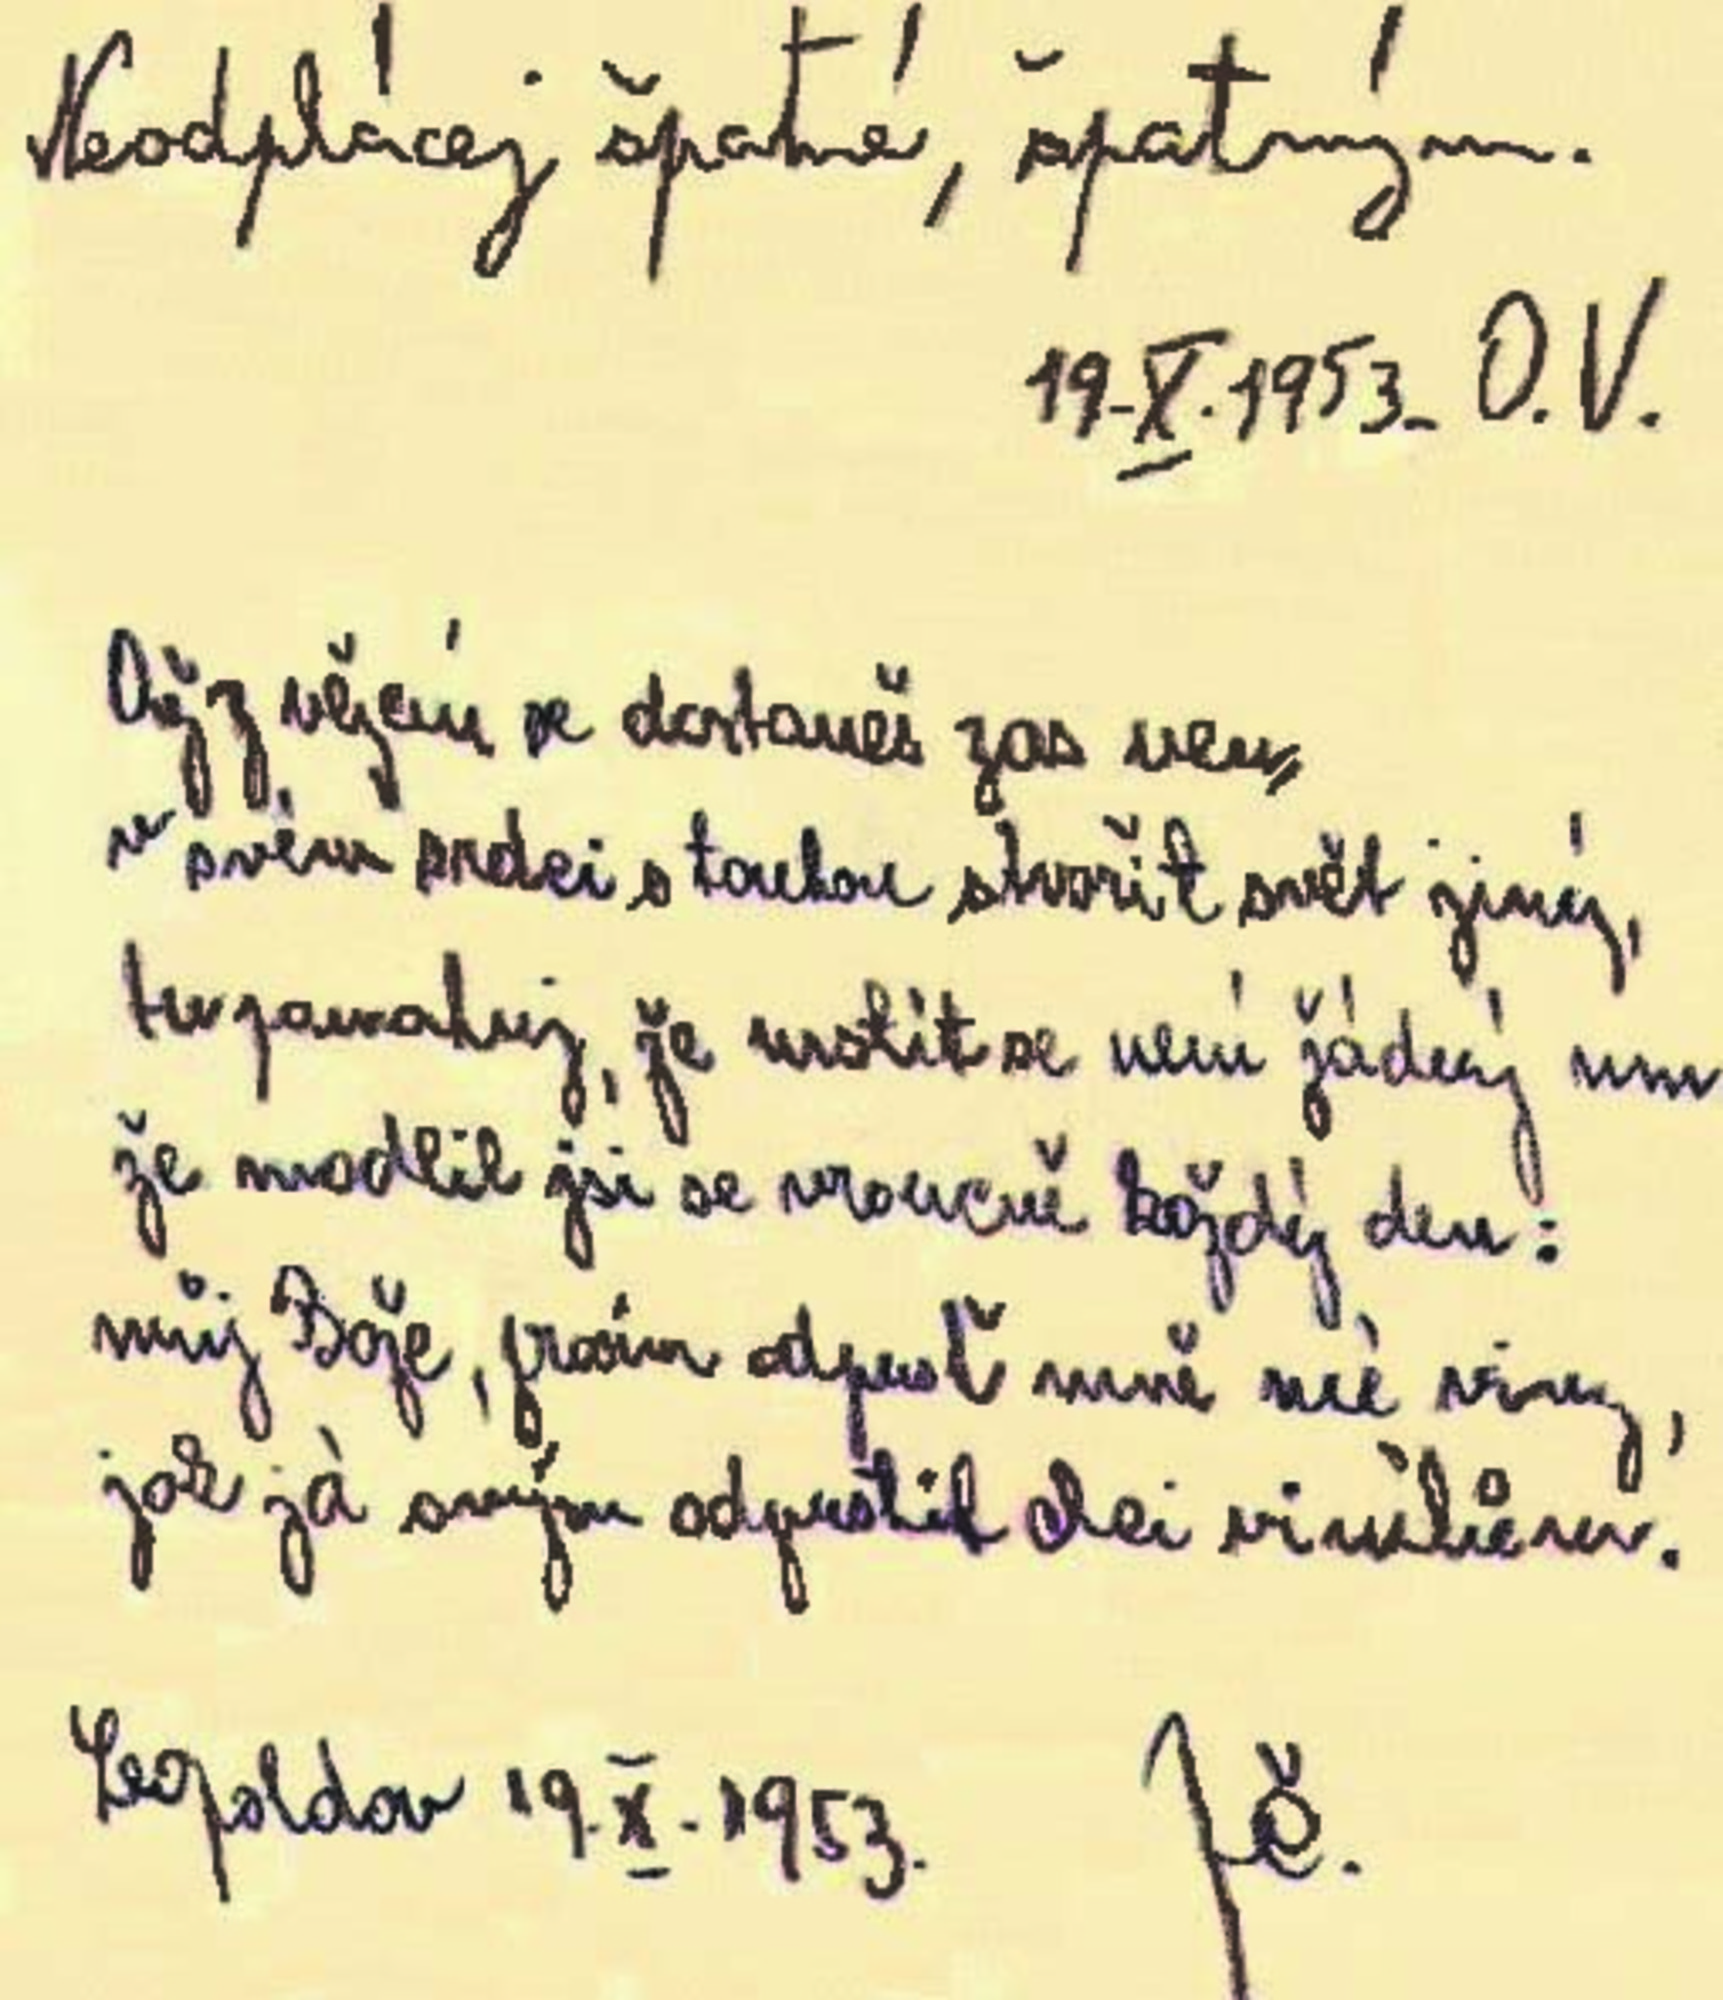 Neodplácej špatné, špatným.
19.X.1953. O.V.
Až z vězení se dostaneš zas ven,
v svém srdci s touhou stvořit svět jiný,
tu pamatuj, že mstít se není žádný um
že modlil jsi se vroucně každý den:
můj Bože, prosím odpusť mně mé viny,
jak já svým odpustil chci viníkům.
Leopoldov 19.X.1953.